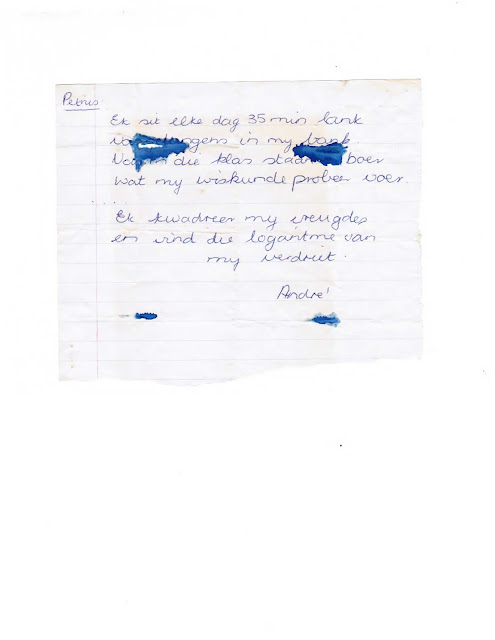 Petrus
Ek sit elke dag 35 min lank
in my bank
die klas boer
wat my wiskunde probeer voer.
.....
Ek kwadreer my vreugdes
en vind die logaritme van
my verdriet.
André